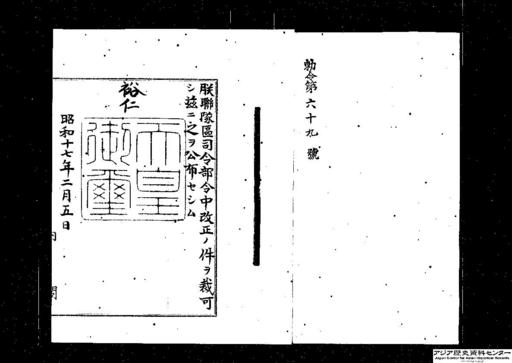 勅令第六十九號
朕聯隊區司令部令中改正ノ件ヲ裁可
シ茲ニ之ヲ公布セシム
裕仁
天皇
御璽
昭和十七年二月五日
内閣
アジア歴史資料センター
Japan Center for Asian Historical Records